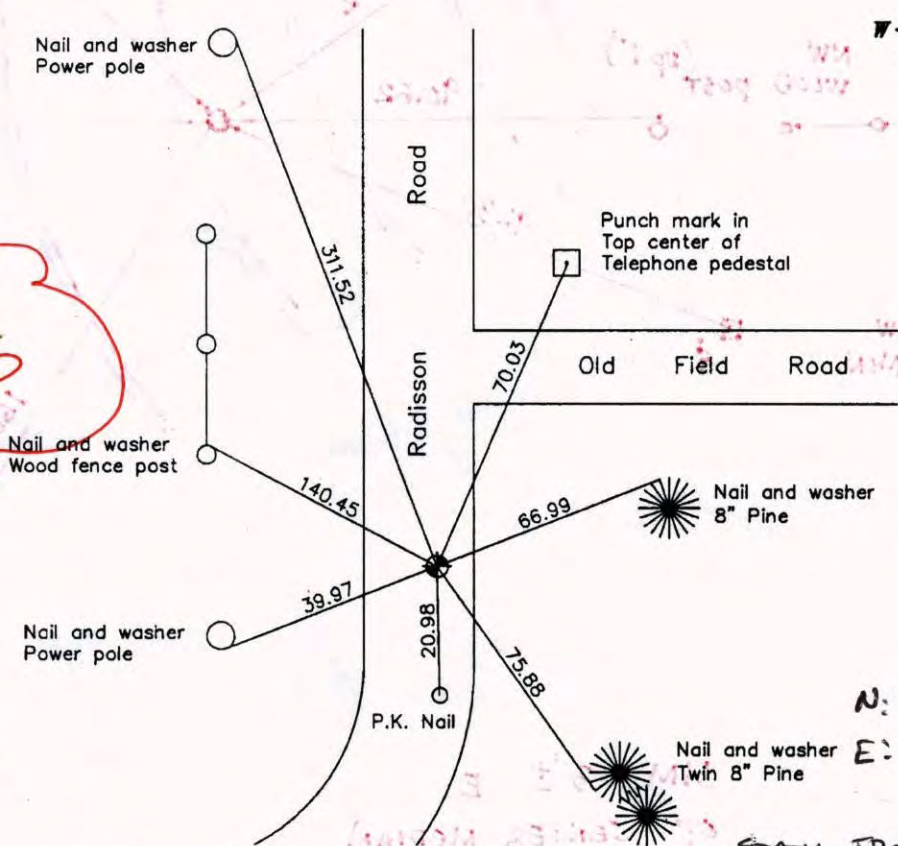 Nail and washer
Power pole
311.52
Road
Radisson
Punch mark in
Top center of
Telephone pedestal
70.03
Old Field Road
Nail and washer
Wood fence post
140.45
66.99
Nail and washer
8" Pine
39.97
Nail and washer
Power pole
20.98
P.K. Nail
75.88
Nail and washer
Twin 8" Pine
N:
E: